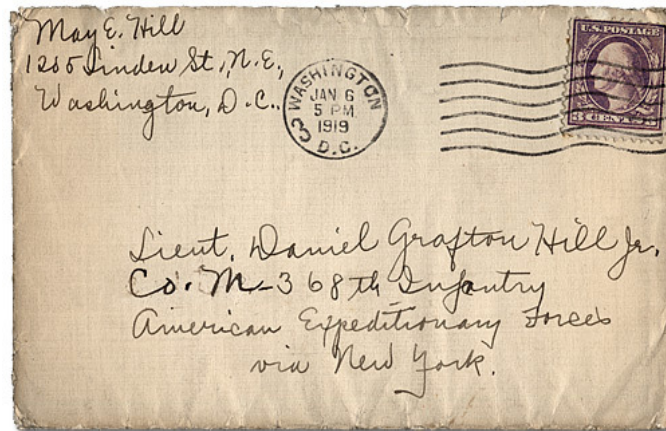 May E. Hill
1205 Linden St., N.E.,
Washington, D.C.
WASHINGTON
JAN 6
5 PM
1919
D.C.
3
U.S. POSTAGE
3 CENTS 3
Lieut. Daniel Grafton Hill Jr.
Co. M-368th Infantry
American Expeditionary Forces
via New York.